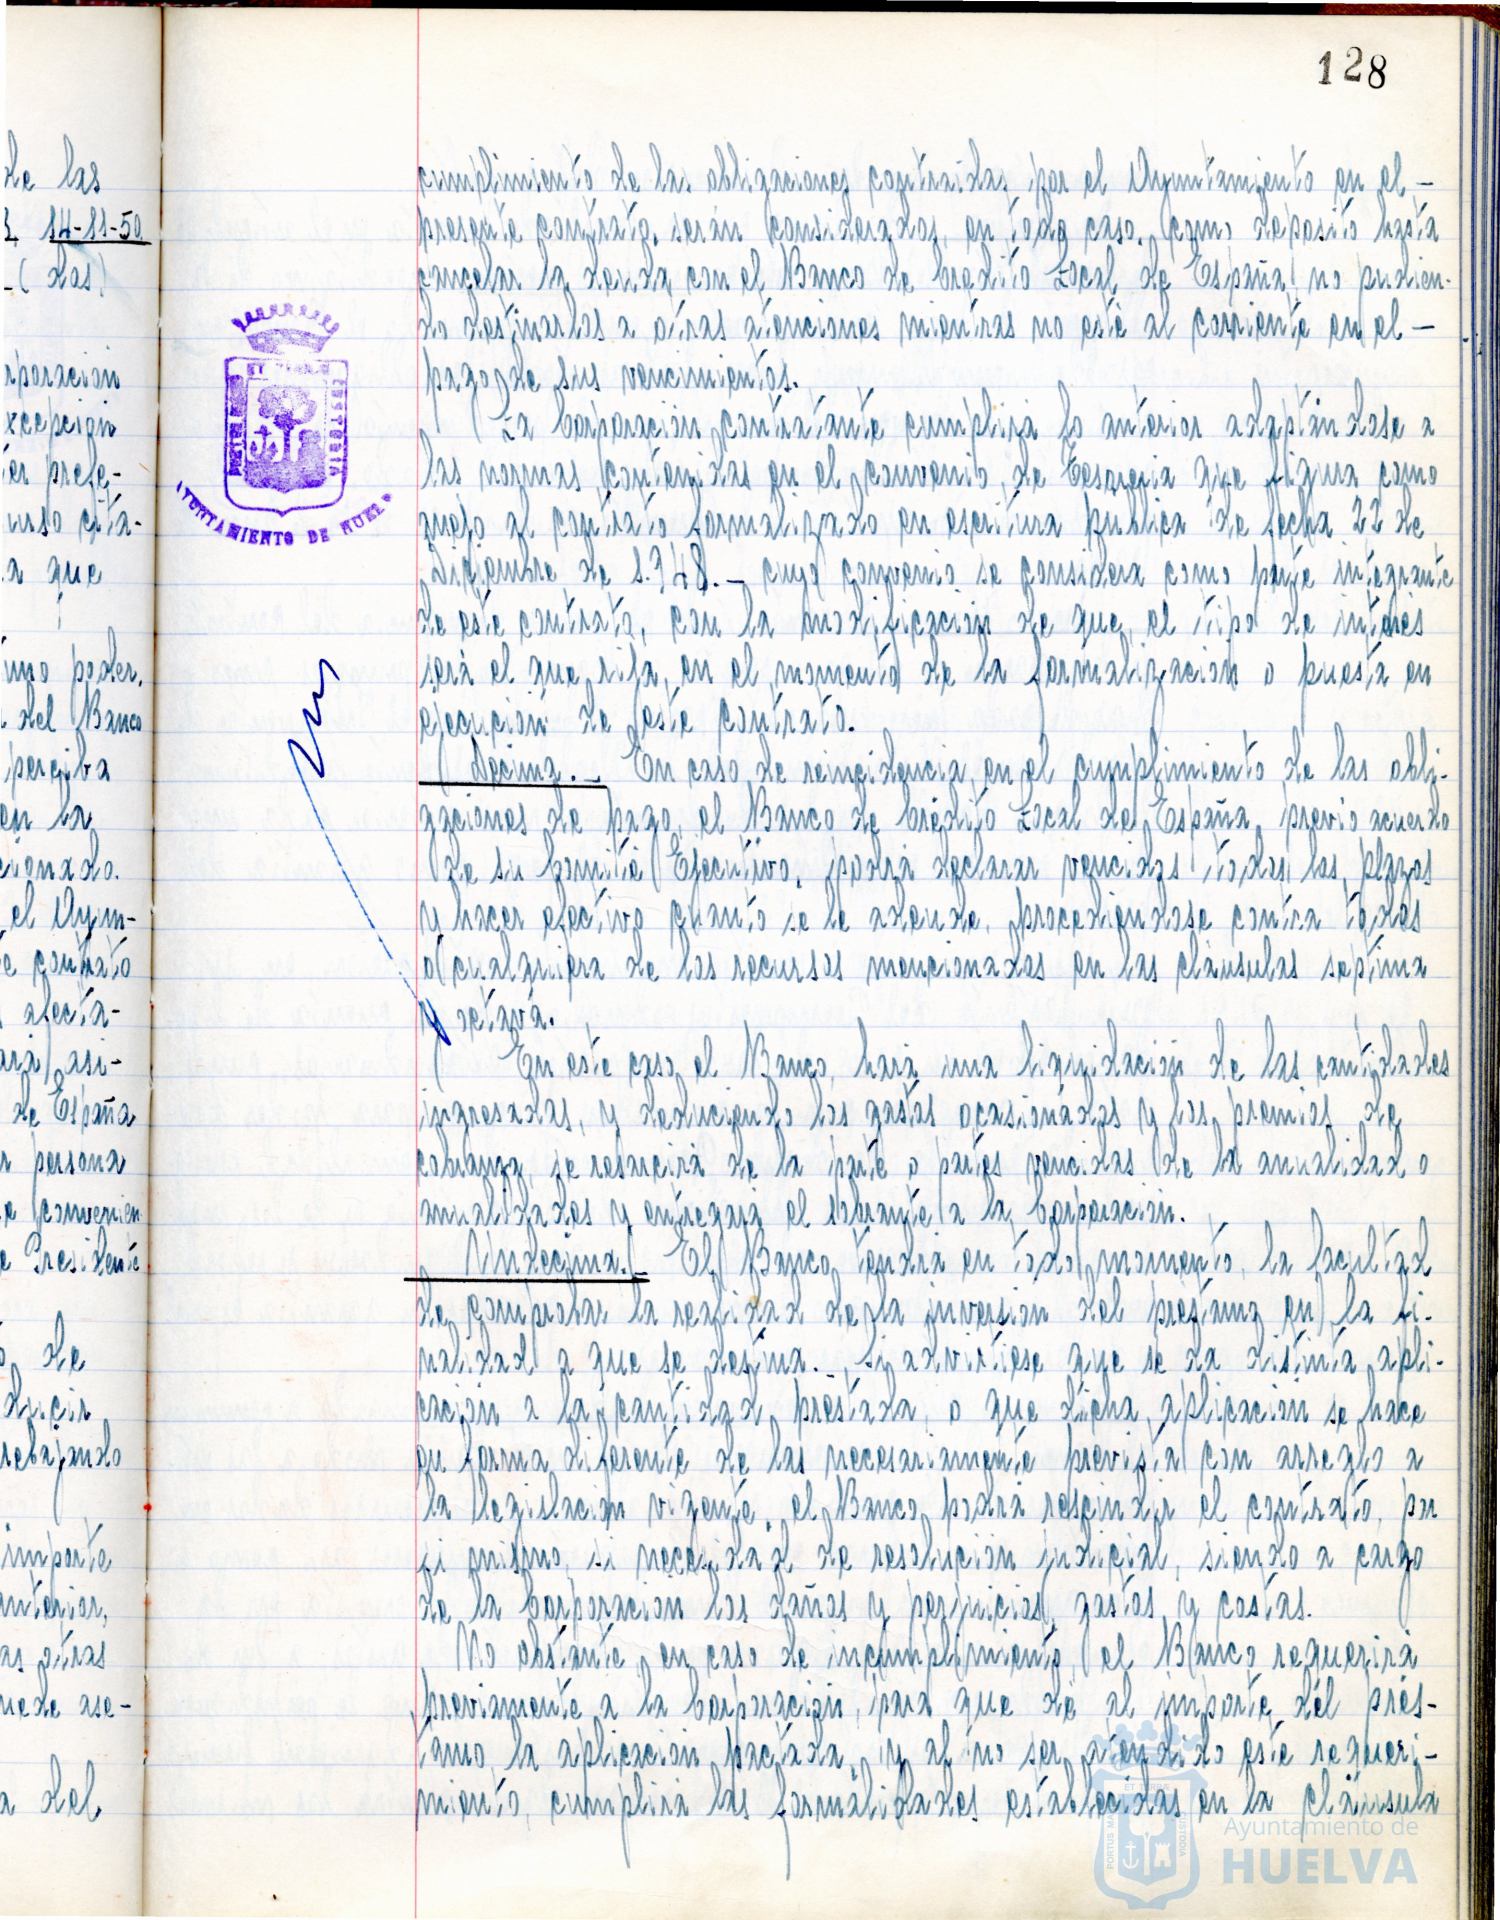 128
de las
14-11-50
(das)
rporación
xcepción
er prefe-
urso cita-
a que
imo poder,
del Banco
perciba
en la
cionado.
el Ayun-
e contrato
afecta-
ará asi-
de España
r persona
e convenien
e Presidente
de
ducir
rebajando
importe
anterior,
as otras
uede ase-
a del
cumplimiento de las obligaciones contraidas por el Ayuntamiento en el -
presente contrato, serán considerados, en todo caso, como deposito hasta
cancelar la deuda con el Banco de Crédito Local de España, no pudien-
do destinarlos a otras atenciones mientras no esté al corriente en el -
pago de sus vencimientos.
La Corporación contratante cumplirá lo anterior adaptándose a
las normas contenidas en el convenio de Tesoreria que figura como
anejo al contrato formalizado en escritura publica de fecha 22 de
Diciembre de 1.948.- cuyo convenio se considera como parte integrante
de este contrato, con la modificación de que el tipo de interés
será el que rija en el momento de la formalización o puesta en
ejecución de este contrato.
Décima.- En caso de reincidencia en el cumplimiento de las obli-
gaciones de pago, el Banco de Crédito Local de España, previo acuerdo
de su Comité Ejecutivo, podrá declarar vencidos todos los plazos
y hacer efectivo cuanto se le adeude, procediendose contra todos
o cualquiera de los recursos mencionados en las cláusulas séptima
y octava.
En este caso el Banco, hará una liquidación de las cantidades
ingresadas, y deduciendo los gastos ocasionados y los premios de
cobranza, se resarcirá de la parte o partes vencidas de la anualidad o
anualidades y entregará el sobrante a la Corporación.
Undécima.- El Banco tendrá en todo momento, la facultad
de comprobar la realidad de la inversión del préstamo en la fi-
nalidad a que se destina.- Si advirtiese que se da distinta apli-
cación a la cantidad prestada, o que dicha aplicación se hace
en forma diferente de las necesariamente prevista con arreglo a
la legislación vigente, el Banco podrá rescindir el contrato, por
si mismo, si necesidad de resolución judicial, siendo a cargo
de la Corporación los daños y perjuicios, gastos y costas.
No obstante, en caso de incumplimiento, el Banco requerirá
previamente a la Corporación, para que dé al importe del prés-
tamo, la aplicación pactada, y al no ser atendido este requeri-
miento, cumplirá las formalidades establecidas en la cláusula
AYUNTAMIENTO DE HUELVA
PORTUS MARIS ET TERRAE CUSTODIA
Ayuntamiento de
HUELVA